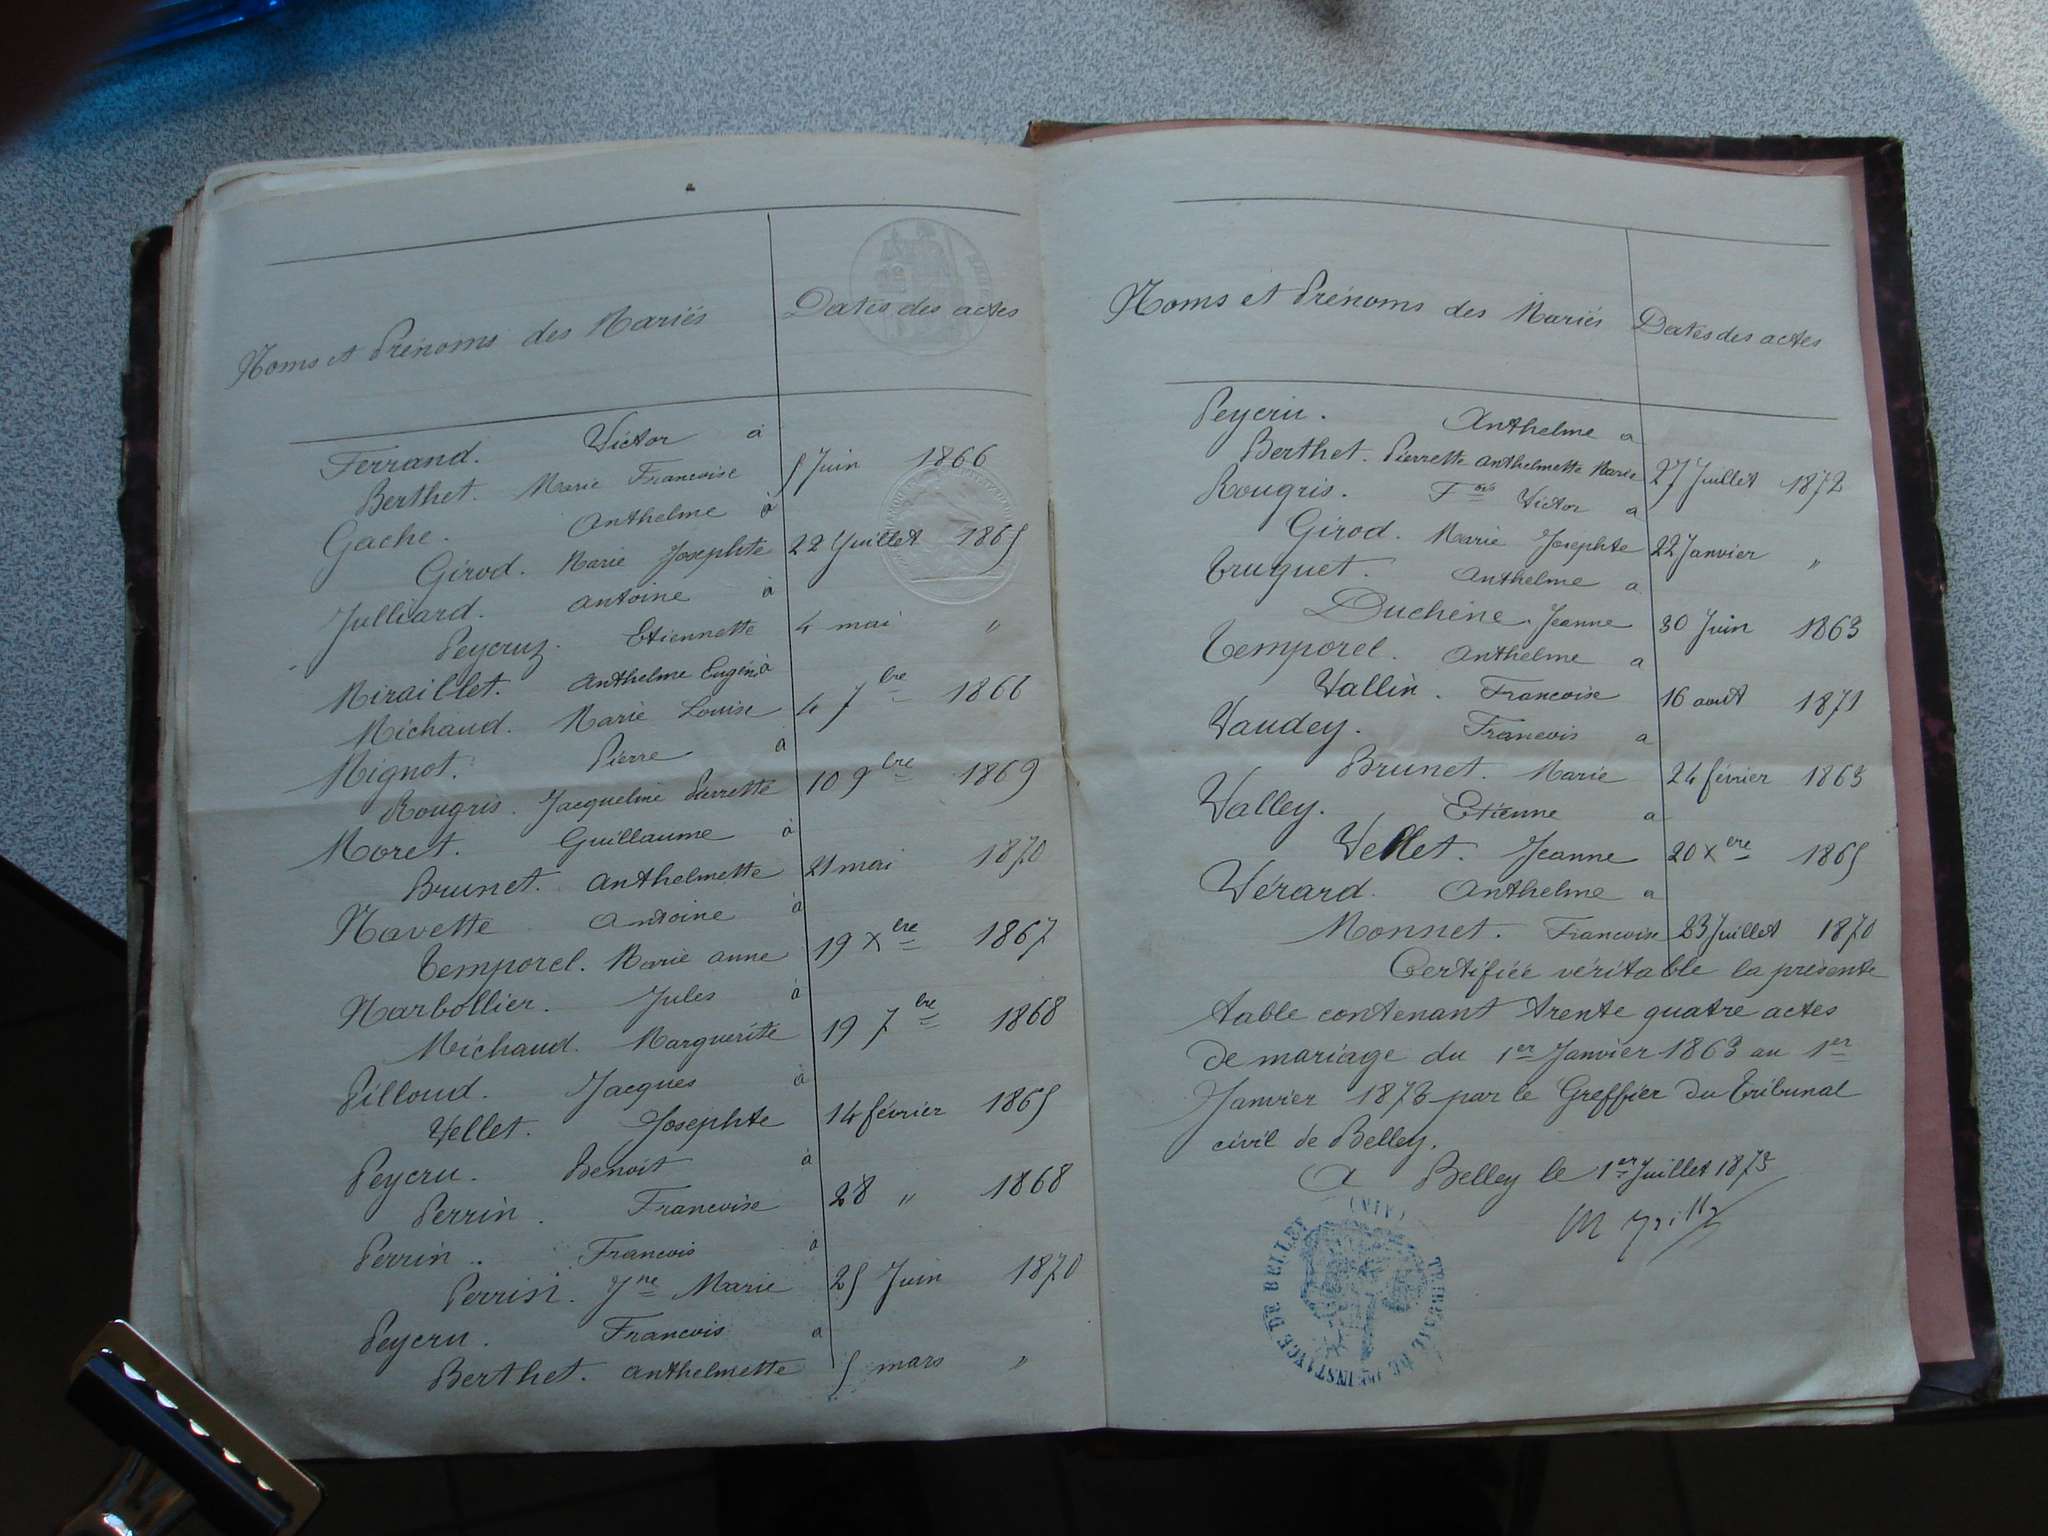 Noms et Prénoms des Mariés Dates des actes
Ferrand. Victor à
Berthet. Marie Francoise 5 Juin 1866
Gache. Anthelme à
Girod. Marie Josephte 22 Juillet 1865
Julliard. Antoine à
Peycruz. Etiennette 4 mai "
Miraillet. Anthelme Eugène à
Michaud. Marie Louise 4 7bre 1866
Mignot. Pierre à
Rougris. Jacqueline Pierrette 10 9bre 1869
Moret. Guillaume à
Brunet. Anthelmette 21 mai 1870
Navette Antoine à
Temporel. Marie anne 19 Xbre 1867
Narbollier. Jules à
Michaud. Marguerite 19 7bre 1868
Pilloud. Jacques à
Vellet. Josephte 14 février 1865
Peycru. Benoit à
Perrin. Francoise 28 " 1868
Perrin. Francois à
Perrin. Jne Marie 25 Juin 1870
Peycru. Francois à
Berthet. Anthelmette 5 mars "
Noms et Prénoms des Mariés Dates des actes
Peycru. Anthelme a
Berthet. Pierrette Anthelmette Marie 27 Juillet 1872
Rougris. Fois Victor a
Girod. Marie Josephte 22 Janvier "
Truguet. Anthelme a
Duchêne. Jeanne 30 Juin 1863
Temporel. Anthelme a
Vallin. Francoise 16 aout 1871
Vaudey. Francois a
Brunet. Marie 24 février 1863
Valley. Etienne a
Vellet. Jeanne 20 Xbre 1865
Vérard. Anthelme a
Monnet. Francoise 23 Juillet 1870
Certifiée véritable la présente
table contenant trente quatre actes
de mariage du 1er Janvier 1863 au 1er
Janvier 1873 par le Greffier du Tribunal
civil de Belley.
A Belley le 1er Juillet 1873
TRIBUNAL DE 1RE INSTANCE DE BELLEY (AIN)